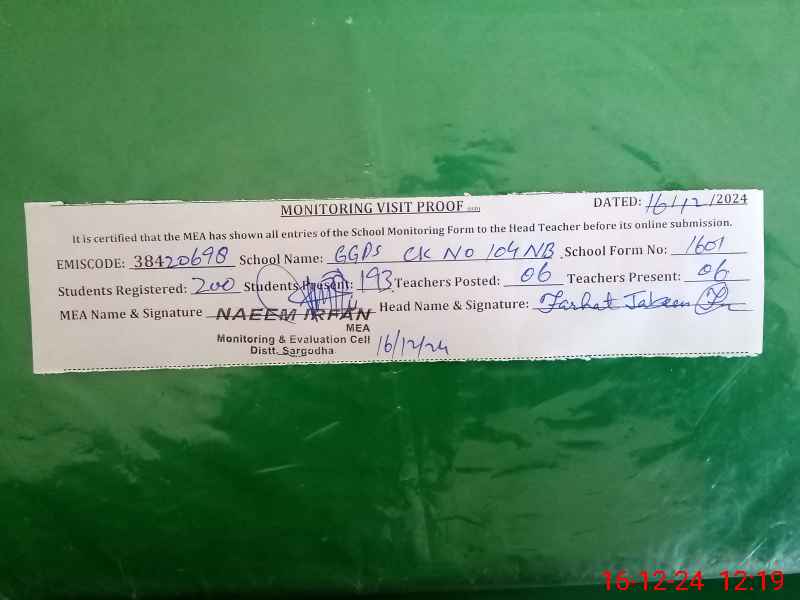 MONITORING VISIT PROOF
DATED: 16/12/2024
It is certified that the MEA has shown all entries of the School Monitoring Form to the Head Teacher before its online submission.
EMISCODE: 38420698 School Name: GGPS CK NO 104 NB School Form No: 1601
Students Registered: 200 Students Present: 193 Teachers Posted: 06 Teachers Present: 06
MEA Name & Signature NAEEM IRFAN Head Name & Signature: Farhat
MEA
Monitoring & Evaluation Cell 16/12/24
Distt. Sargodha
16-12-24 12:19